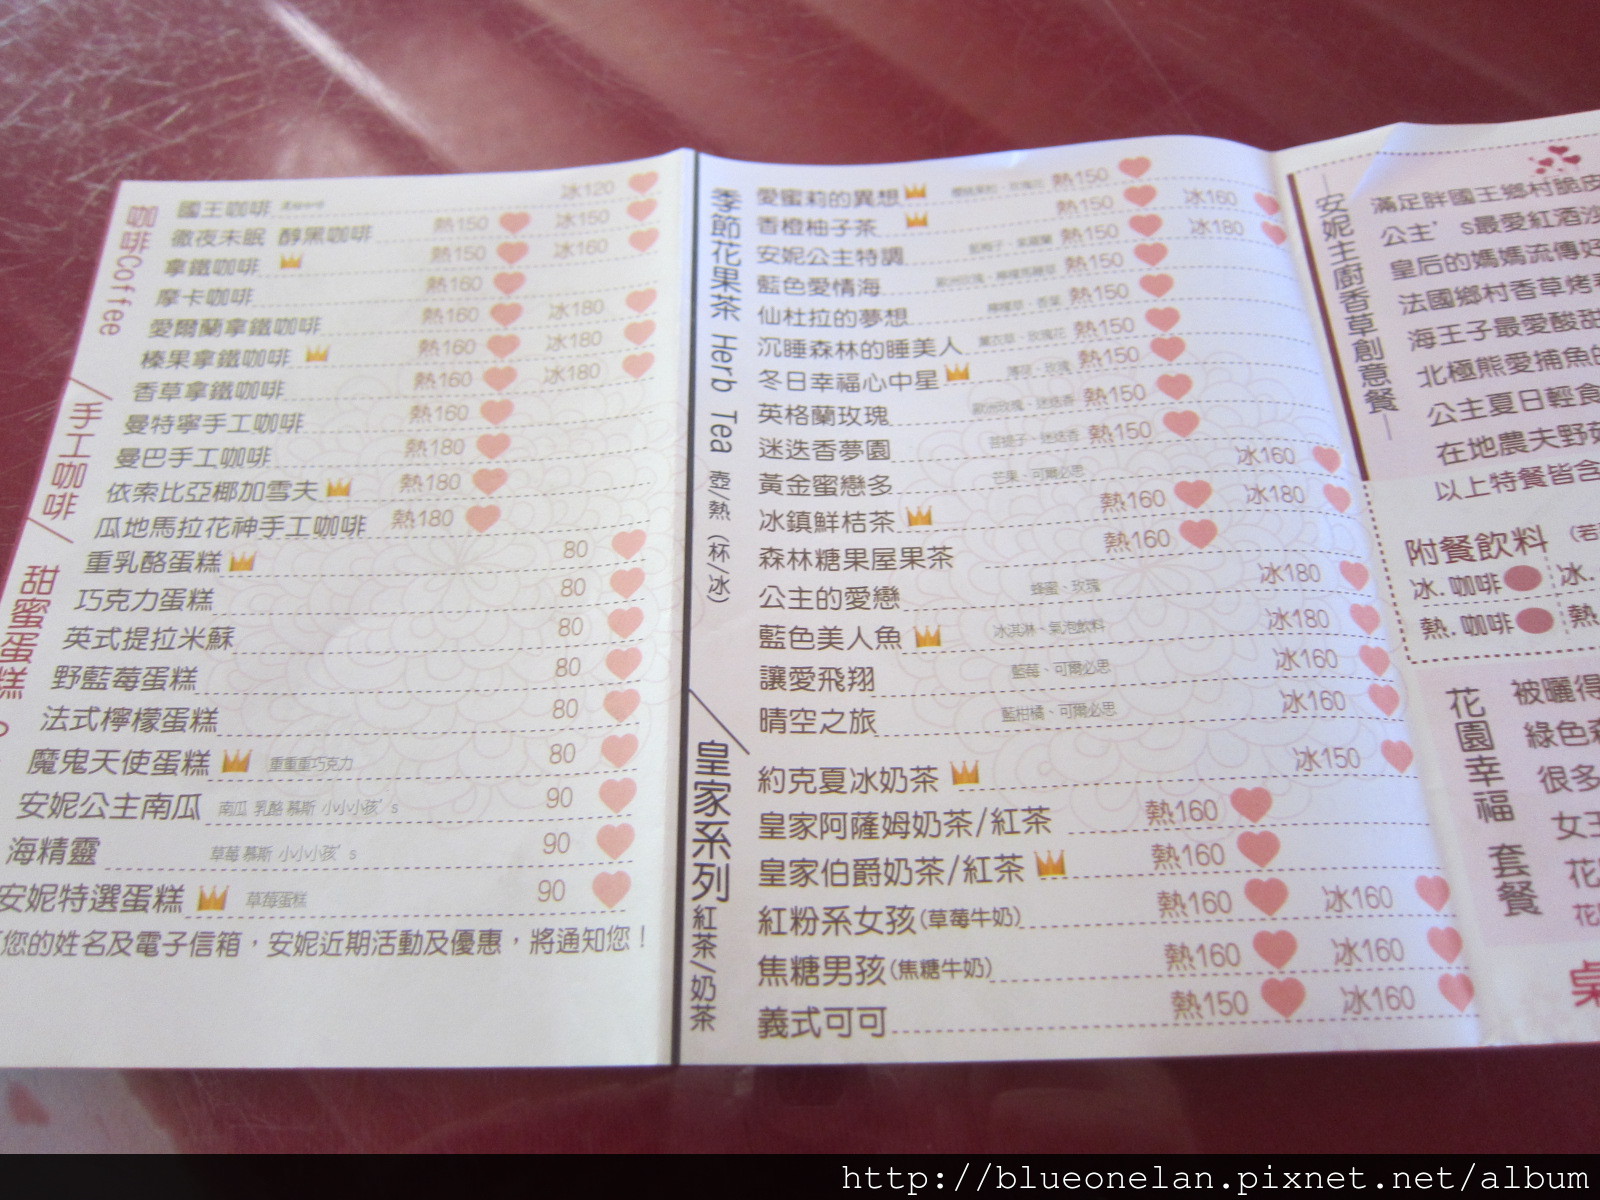 咖啡Coffee
國王咖啡 冰120
徹夜未眠 醇黑咖啡 熱150 冰150
拿鐵咖啡 熱150 冰160
摩卡咖啡 熱160
愛爾蘭拿鐵咖啡 熱160 冰180
榛果拿鐵咖啡 熱160 冰180
香草拿鐵咖啡 熱160 冰180
手工咖啡
曼特寧手工咖啡 熱160
曼巴手工咖啡 熱180
依索比亞椰加雪夫 熱180
瓜地馬拉花神手工咖啡 熱180
甜蜜蛋糕
重乳酪蛋糕 80
巧克力蛋糕 80
英式提拉米蘇 80
野藍莓蛋糕 80
法式檸檬蛋糕 80
魔鬼天使蛋糕 重重重巧克力 80
安妮公主南瓜 南瓜 乳酪 慕斯 小小小孩's 90
海精靈 草莓 慕斯 小小小孩's 90
安妮特選蛋糕 草莓蛋糕 90
您的姓名及電子信箱，安妮近期活動及優惠，將通知您！
季節花果茶 Herb Tea 壺/熱 (杯/冰)
愛蜜莉的異想 熱150
香橙柚子茶 熱150 冰160
安妮公主特調 熱150 冰180
藍色愛情海 熱150
仙杜拉的夢想 檸檬草、香蜂 熱150
沉睡森林的睡美人 薰衣草、玫瑰花 熱150
冬日幸福心中星 薄荷、玫瑰 熱150
英格蘭玫瑰 歐洲玫瑰、迷迭香 熱150
迷迭香夢園 菩提子、迷迭香 熱150
黃金蜜戀多 芒果、可爾必思 冰160
冰鎮鮮桔茶 熱160 冰180
森林糖果屋果茶 熱160
公主的愛戀 蜂蜜、玫瑰 冰180
藍色美人魚 冰淇淋、氣泡飲料 冰180
讓愛飛翔 藍莓、可爾必思 冰160
晴空之旅 藍柑橘、可爾必思 冰160
皇家系列 紅茶/奶茶
約克夏冰奶茶 冰150
皇家阿薩姆奶茶/紅茶 熱160
皇家伯爵奶茶/紅茶 熱160
紅粉系女孩(草莓牛奶) 熱160 冰160
焦糖男孩(焦糖牛奶) 熱160 冰160
義式可可 熱150 冰160
—安妮主廚香草創意餐—
滿足胖國王鄉村脆皮
公主's最愛紅酒沙
皇后的媽媽流傳好
法國鄉村香草烤
海王子最愛酸甜
北極熊愛捕魚的
公主夏日輕食
在地農夫野
以上特餐皆含
附餐飲料 (若
冰.咖啡 冰.
熱.咖啡 熱.
花園幸福 套餐
被曬得
綠色森
很多
女王
花
花
http://blueonelan.pixnet.net/album